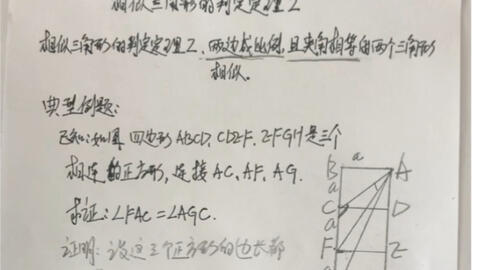 相似三角形的判定定理2
相似三角形的判定定理2、两边成比例,且夹角相等的两个三角形
相似。
典型例题:
已知:如图 四边形ABCD、CDEF、EFGH是三个
相连的正方形,连接AC、AF、AG.
求证:∠FAC=∠AGC.
证明:设这三个正方形的边长都
B a A
a
C D
a
F E
a